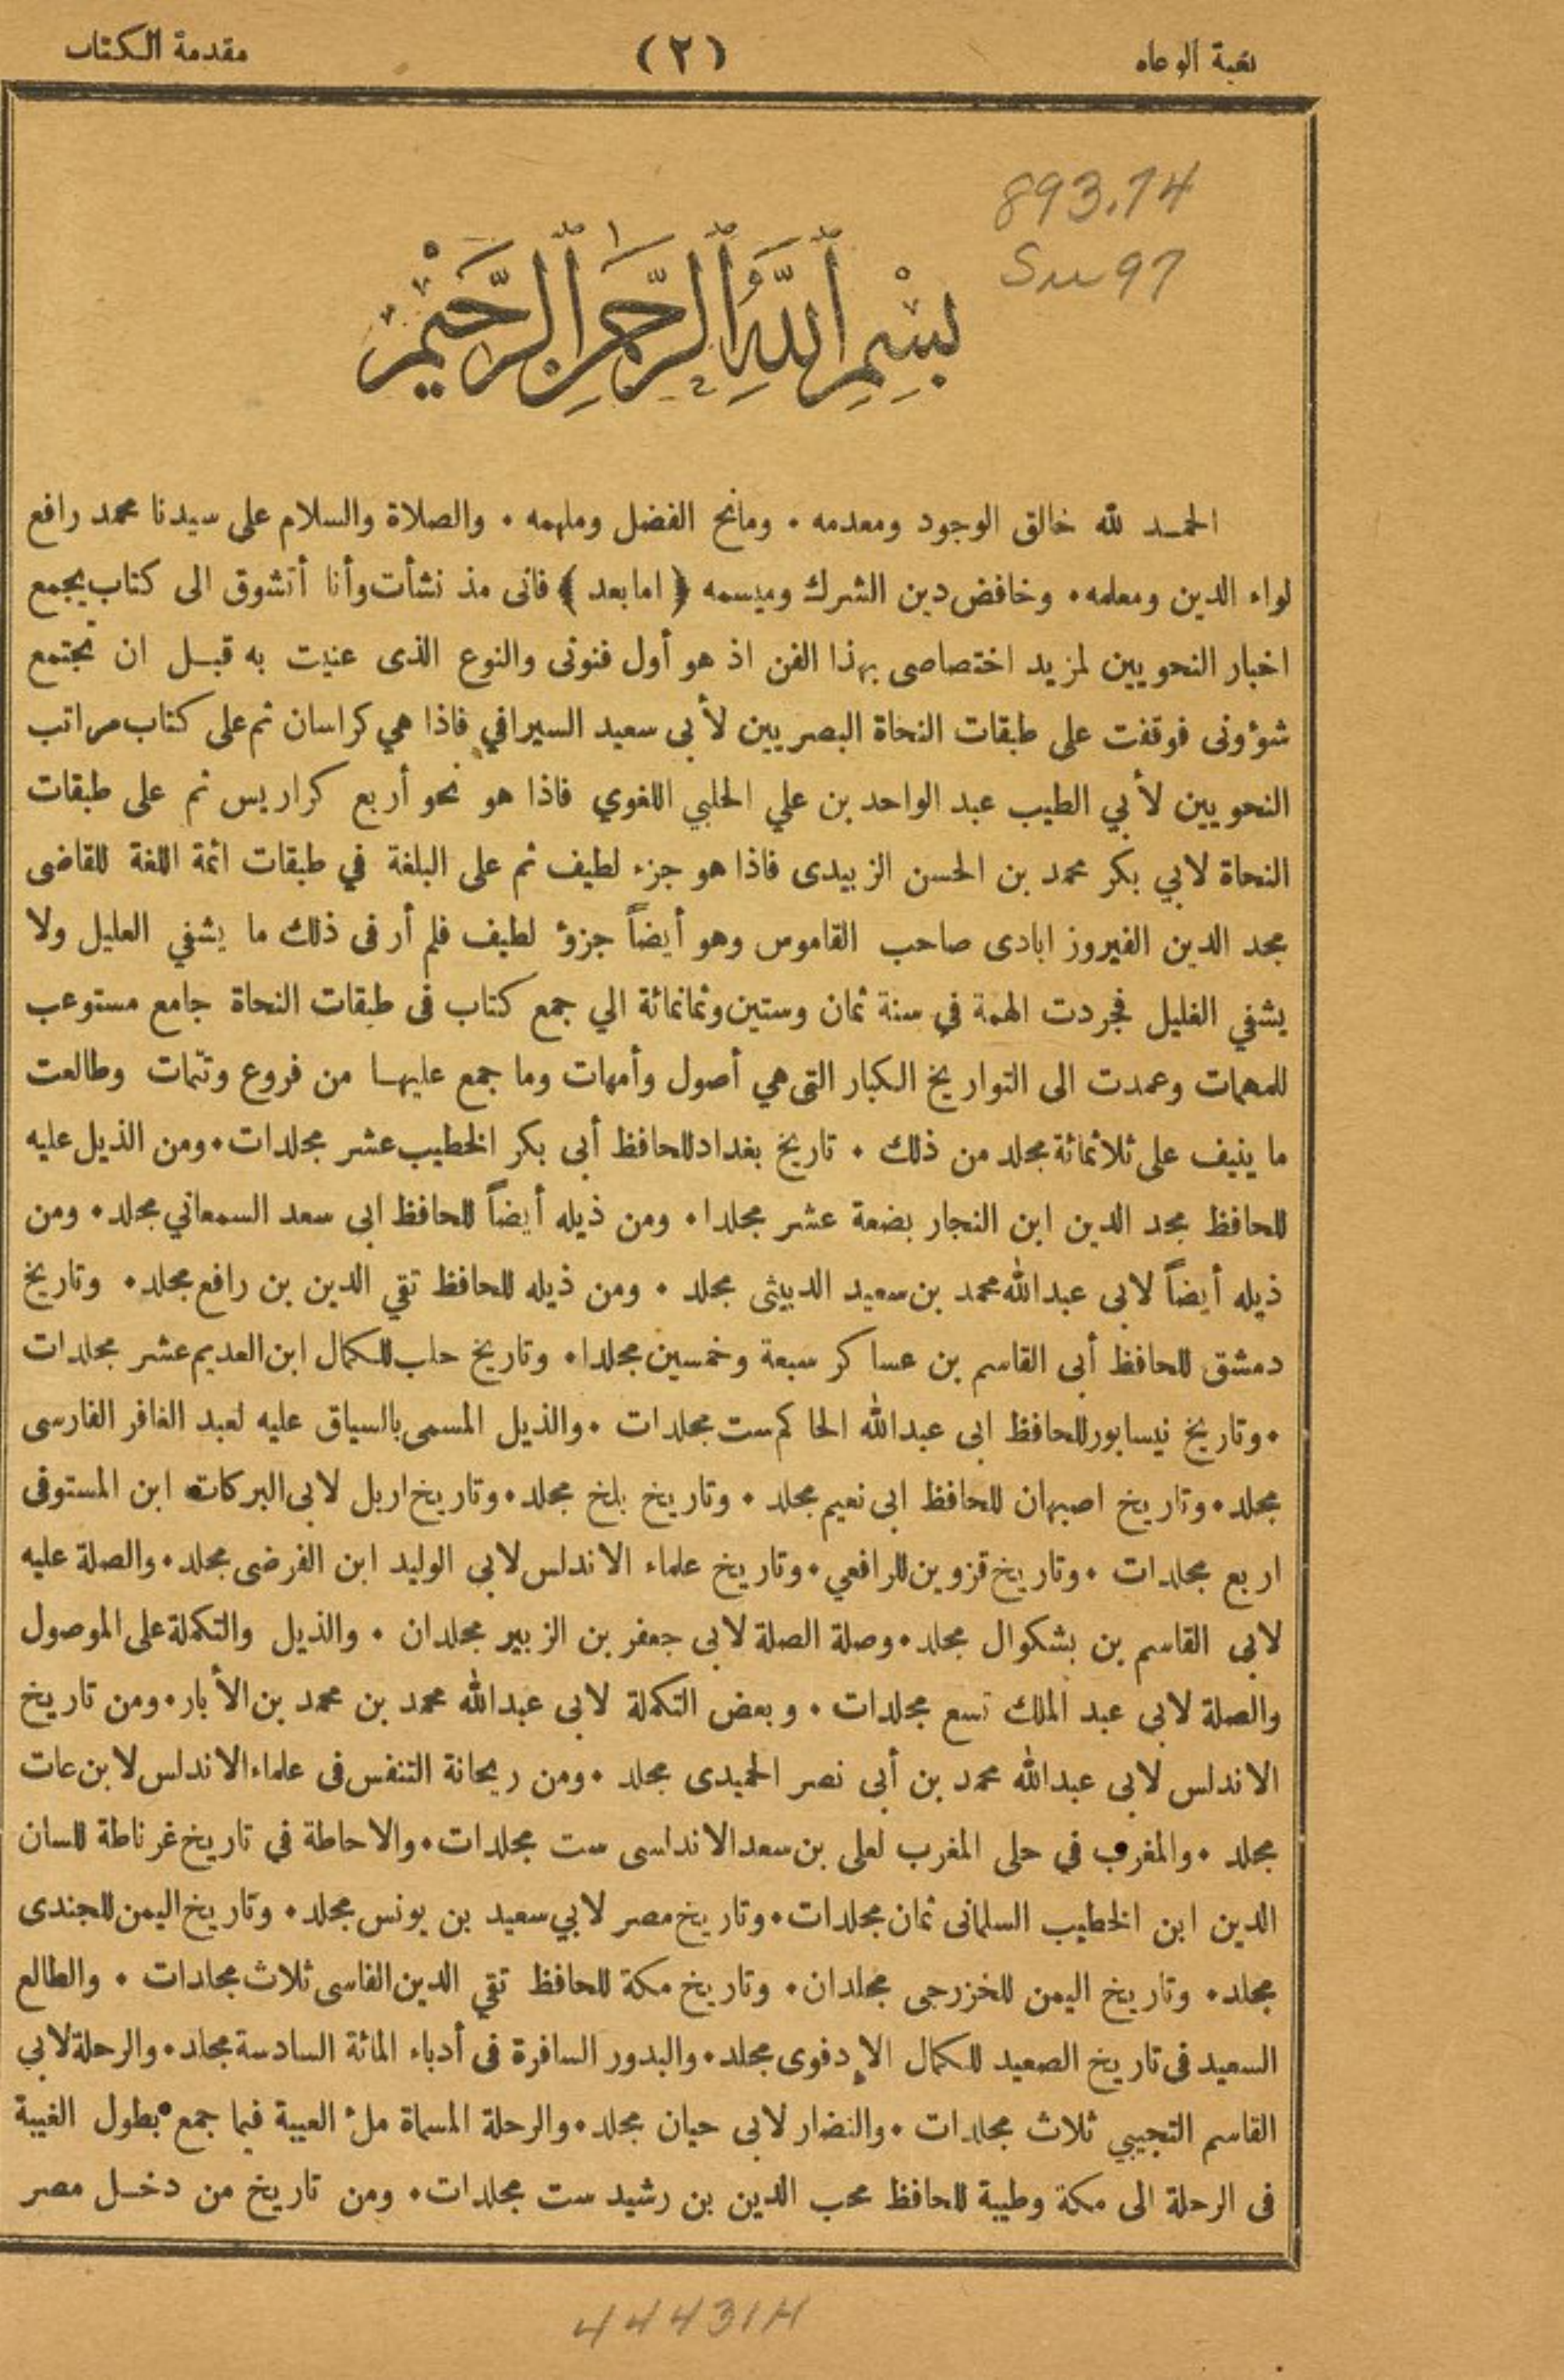 بغية الوعاه (٢) مقدمة الكتاب
893.74
Su 97
بِسْمِ ٱللَّهِ ٱلرَّحْمَنِ ٱلرَّحِيمِ
الحمد لله خالق الوجود ومعدمه ٠ ومانح الفضل وملهمه ٠ والصلاة والسلام على سيدنا محمد رافع
لواء الدين ومعلمه ٠ وخافض دين الشرك وميسمه ﴿ اما بعد ﴾ فانى مذ نشأت وأنا أتشوق الى كتاب يجمع
اخبار النحويين لمزيد اختصاصى بهذا الفن اذ هو أول فنونى والنوع الذى عنيت به قبل ان تجتمع
شؤونى فوقفت على طبقات النحاة البصريين لأبى سعيد السيرافي فاذا هي كراسان ثم على كتاب مراتب
النحويين لأبي الطيب عبد الواحد بن علي الحلبي اللغوي فاذا هو نحو أربع كراريس ثم على طبقات
النحاة لابي بكر محمد بن الحسن الزبيدى فاذا هو جزء لطيف ثم على البلغة في طبقات ائمة اللغة للقاضى
مجد الدين الفيروز ابادى صاحب القاموس وهو أيضاً جزؤ لطيف فلم أر فى ذلك ما يشفي العليل ولا
يشفي الغليل فجردت الهمة في سنة ثمان وستين وثمانمائة الي جمع كتاب فى طبقات النحاة جامع مستوعب
للمهمات وعمدت الى التواريخ الكبار التى هي أصول وأمهات وما جمع عليها من فروع وتتمات وطالعت
ما ينيف على ثلاثمائة مجلد من ذلك ٠ تاريخ بغداد للحافظ أبى بكر الخطيب عشر مجلدات ٠ ومن الذيل عليه
للحافظ مجد الدين ابن النجار بضعة عشر مجلدا ٠ ومن ذيله أيضاً للحافظ ابى سعد السمعاني مجلد ٠ ومن
ذيله أيضاً لابى عبدالله محمد بن سعيد الدبيثى مجلد ٠ ومن ذيله للحافظ تقي الدين بن رافع مجلد ٠ وتاريخ
دمشق للحافظ أبى القاسم بن عساكر سبعة وخمسين مجلدا ٠ وتاريخ حلب للكمال ابن العديم عشر مجلدات
٠ وتاريخ نيسابور للحافظ ابى عبدالله الحاكم ست مجلدات ٠ والذيل المسمى بالسياق عليه لعبد الغافر الفارسى
مجلد ٠ وتاريخ اصبهان للحافظ ابى نعيم مجلد ٠ وتاريخ بلخ مجلد ٠ وتاريخ اربل لابى البركات ابن المستوفى
اربع مجلدات ٠ وتاريخ قزوين للرافعي ٠ وتاريخ علماء الاندلس لابي الوليد ابن الفرضى مجلد ٠ والصلة عليه
لابى القاسم بن بشكوال مجلد ٠ وصلة الصلة لابى جعفر بن الزبير مجلدان ٠ والذيل والتكملة على الموصول
والصلة لابي عبد الملك تسع مجلدات ٠ وبعض التكملة لابى عبدالله محمد بن محمد بن الأبار ٠ ومن تاريخ
الاندلس لابى عبدالله محمد بن أبى نصر الحميدى مجلد ٠ ومن ريحانة التنفس فى علماء الاندلس لابن عات
مجلد ٠ والمغرب في حلى المغرب لعلى بن سعد الاندلسى ست مجلدات ٠ والاحاطة في تاريخ غرناطة للسان
الدين ابن الخطيب السلمانى ثمان مجلدات ٠ وتاريخ مصر لابي سعيد بن يونس مجلد ٠ وتاريخ اليمن للجندى
مجلد ٠ وتاريخ اليمن للخزرجى مجلدان ٠ وتاريخ مكة للحافظ تقي الدين الفاسى ثلاث مجلدات ٠ والطالع
السعيد فى تاريخ الصعيد للكمال الإدفوى مجلد ٠ والبدور السافرة فى أدباء المائة السادسة مجلد ٠ والرحلة لابي
القاسم التجيبي ثلاث مجلدات ٠ والنضار لابى حيان مجلد ٠ والرحلة المسماة ملْ العيبة فيما جمع بطول الغيبة
فى الرحلة الى مكة وطيبة للحافظ محب الدين بن رشيد ست مجلدات ٠ ومن تاريخ من دخل مصر
44431H